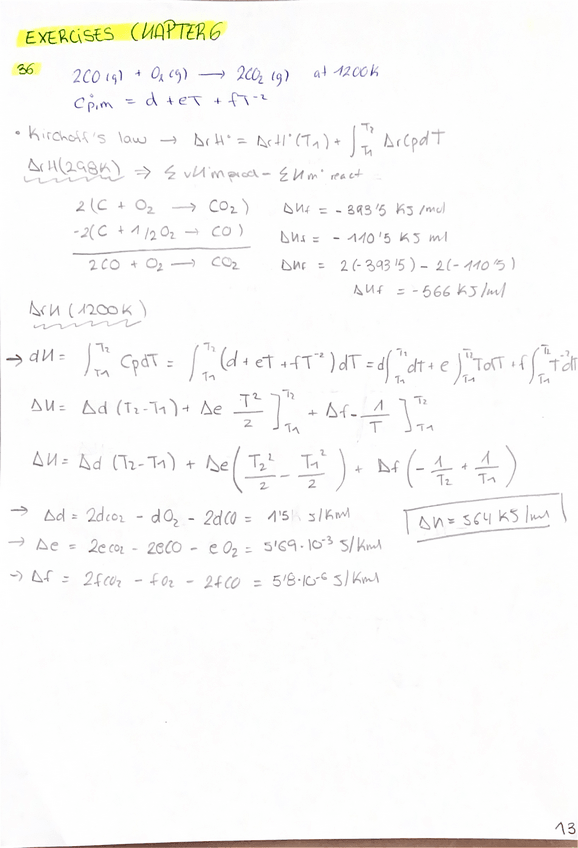 EXERCISES CHAPTER 6
36 2CO (g) + O₂ (g) → 2CO₂ (g) at 1200K
C°p,m = d + eT + fT⁻²
• Kirchoff's law → ΔrH° = ΔrH°(T₁) + ∫_T₁^T₂ ΔrCp dT
ΔrH(298K) ⇒ Σ νH°m prod - Σ Hm° react
2(C + O₂ → CO₂) ΔHf = -393'5 KJ/mol
-2(C + 1/2 O₂ → CO) ΔHf = -110'5 KJ ml
2CO + O₂ → CO₂ ΔHr = 2(-393'5) - 2(-110'5)
ΔHf = -566 KJ/ml
ΔrH (1200K)
→ dH = ∫_T₁^T₂ CpdT = ∫_T₁^T₂ (d + eT + fT⁻²) dT = d∫_T₁^T₂ dt + e∫_T₁^T₂ TdT + f∫_T₁^T₂ T⁻²dT
ΔH = Δd (T₂-T₁) + Δe T²/2 ]_T₁^T₂ + Δf - 1/T ]_T₁^T₂
ΔH = Δd (T₂-T₁) + Δe (T₂²/2 - T₁²/2) + Δf (-1/T₂ + 1/T₁)
→ Δd = 2dCO₂ - dO₂ - 2dCO = 1'5 J/Kml
ΔH = 564 KJ/ml
→ Δe = 2eCO₂ - 2eCO - eO₂ = 5'69·10⁻³ J/Kml
→ Δf = 2fCO₂ - fO₂ - 2fCO = 5'8·10⁻⁶ J/Kml
13